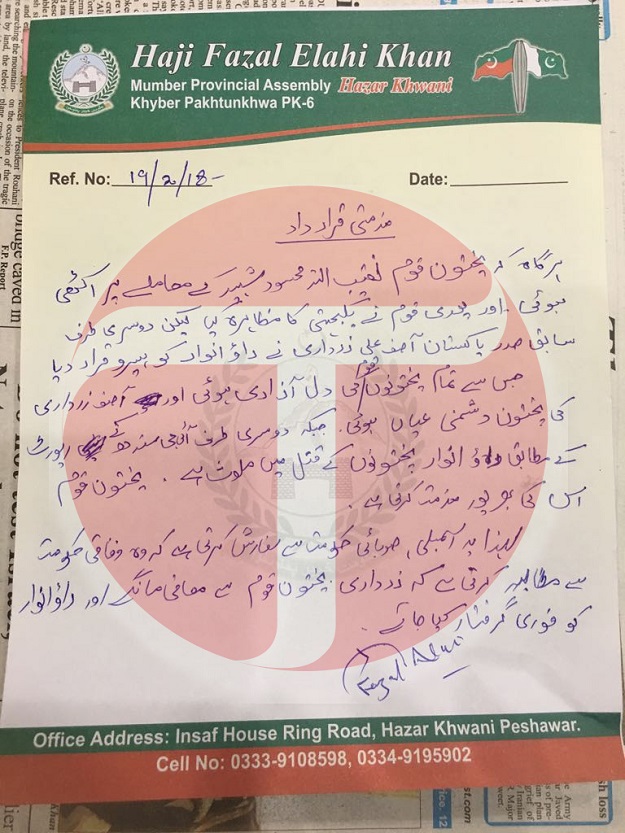 Haji Fazal Elahi Khan
Mumber Provincial Assembly Hazar Khwani
Khyber Pakhtunkhwa PK-6
Ref. No: 19/2/18-
Date:
مذمتی قرارداد
ہر گاہ کہ پختون قوم نقیب اللہ محسود شہید کے معاملے پر اکٹھی
ہوئی اور پوری قوم نے یکجہتی کا مظاہرہ کیا لیکن دوسری طرف
سابق صدر پاکستان آصف علی زرداری نے راؤ انوار کو ہیرو قرار دیا
جس سے تمام پختونوں قوم کی دل آزادی ہوئی اور آصف زرداری
کی پختون دشمنی عیاں ہوئی. جبکہ دوسری طرف آئی جی سندھ کے رپورٹ
کے مطابق راؤ انوار پختونوں کے قتل میں ملوث ہے. پختون قوم
اس کی بھر پور مذمت کرتی ہے.
لہذا یہ اسمبلی صوبائی حکومت سے سفارش کرتی ہے کہ وہ وفاقی حکومت
سے مطالبہ کرتی ہے کہ زرداری پختون قوم سے معافی مانگے اور راؤ انوار
کو فوری گرفتار کیا جائے.
Fazal Elahi
Office Address: Insaf House Ring Road, Hazar Khwani Peshawar.
Cell No: 0333-9108598, 0334-9195902